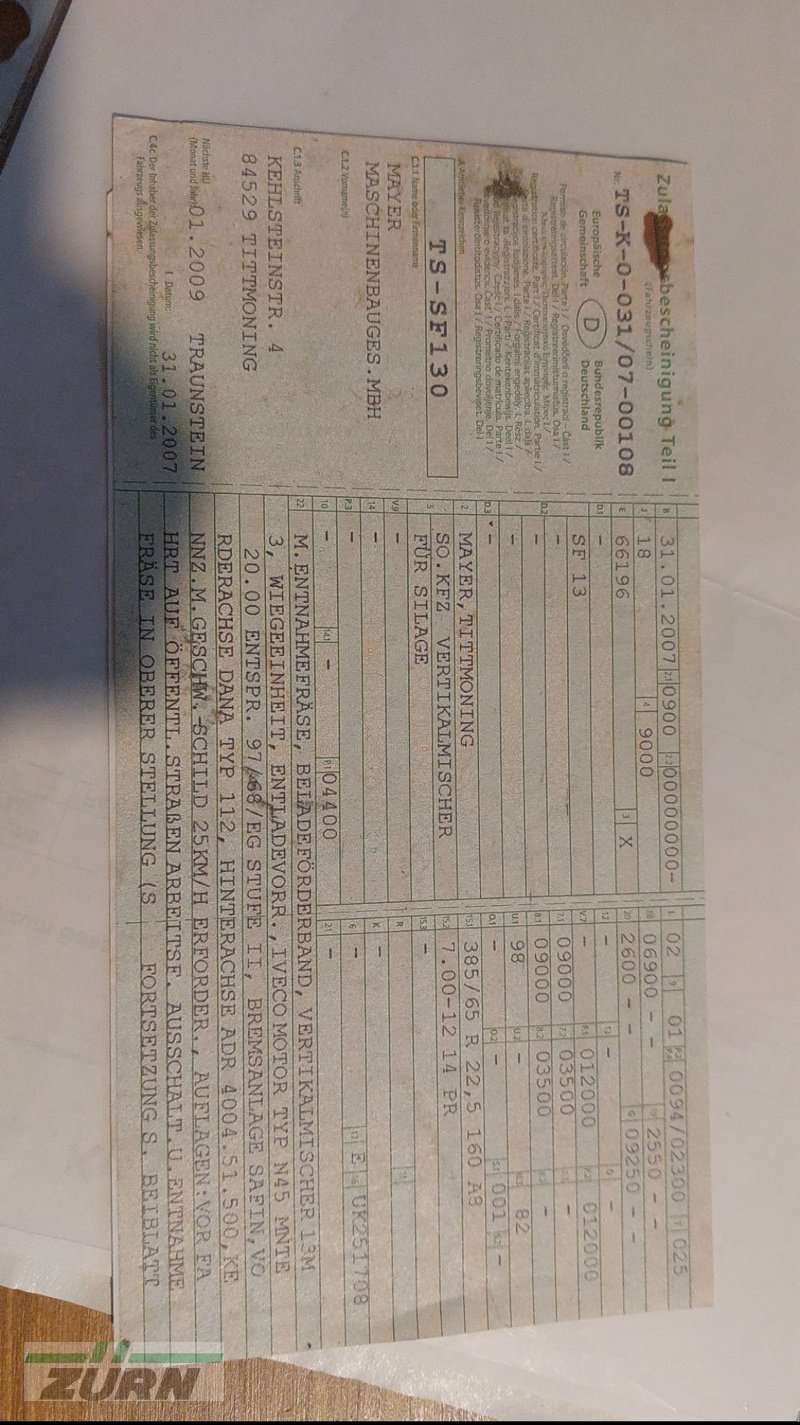 Zula bescheinigung Teil I
(Fahrzeugschein)
Nr. TS-K-0-031/07-00108
Europäische Gemeinschaft
D
Bundesrepublik Deutschland
A Amtliches Kennzeichen
TS-SF130
C.1.1 Name oder Firmenname
MAYER
MASCHINENBAUGES.MBH
C.1.2 Vorname(n)
C.1.3 Anschrift
KEHLSTEINSTR. 4
84529 TITTMONING
Nächste HU
(Monat und Jahr) 01.2009 TRAUNSTEIN
I. Datum: 31.01.2007
C.4c Der Inhaber der Zulassungsbescheinigung wird nicht als Eigentümer des
Fahrzeugs ausgewiesen.
B 31.01.2007 2.1 0900 2.2 00000000-
J 18 4 9000
E 66196 3 X
D.1 -
SF 13
D.2 -
-
-
D.3 -
2 MAYER,TITTMONING
5 SO.KFZ VERTIKALMISCHER
FÜR SILAGE
V.9 -
14 -
P.3 -
10 - 14.1 - P.1 04400
L 02 9 01 P.2 0094/02300 T 025
18 06900 - - 19 2550 - -
20 2600 - - G 09250 - -
12 - 13 - -
V.7 - F.1 012000 F.2 012000
7.1 09000 7.2 03500 -
8.1 09000 8.2 03500 -
U.1 98 U.2 - U.3 82
O.1 - O.2 - S.1 001 S.2 -
15.1 385/65 R 22,5 160 A8
15.2 7.00-12 14 PR
15.3 -
R 11
K -
6 - 17 E 16 UK251708
21 -
22 M.ENTNAHMEFRÄSE, BELADEFÖRDERBAND, VERTIKALMISCHER 13M
3, WIEGEEINHEIT, ENTLADEVORR.,IVECO MOTOR TYP N45 MNTE
20.00 ENTSPR. 97/68/EG STUFE II, BREMSANLAGE SAFIN,VO
RDERACHSE DANA TYP 112, HINTERACHSE ADR 4004.51.500,KE
NNZ.M.GESCHW. SCHILD 25KM/H ERFORDER., AUFLAGEN:VOR FA
HRT AUF ÖFFENTL.STRAßEN ARBEITSF. AUSSCHALT.U.ENTNAHME
FRÄSE IN OBERER STELLUNG (S FORTSETZUNG S. BEIBLATT
ZÜRN